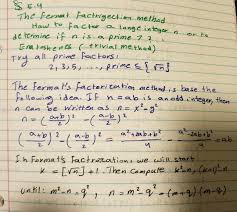 § 5.4
The fermat factorjection method
How to factor a large integer n or to
determine if n is a prime ? ?
Eratosthenes (trivial method)
Try all prime factors:
2, 3, 5, ..., prime ≤ [√n]
The fermat's factorization method is base the
following idea: If n=ab is an odd integer, then
n can be written as n = x²-y²
n = (a+b/2)² - (a-b/2)²
(a+b/2)² - (a-b/2)² = a²+2ab+b²/4 - a²-2ab+b²/4 = ab
In Format's factorization, we will start
k = [√n]+1. Then compute: k²-n, (k+1)²-n
until: m²-n = q², n = m²-q² = (m+q)(m-q)